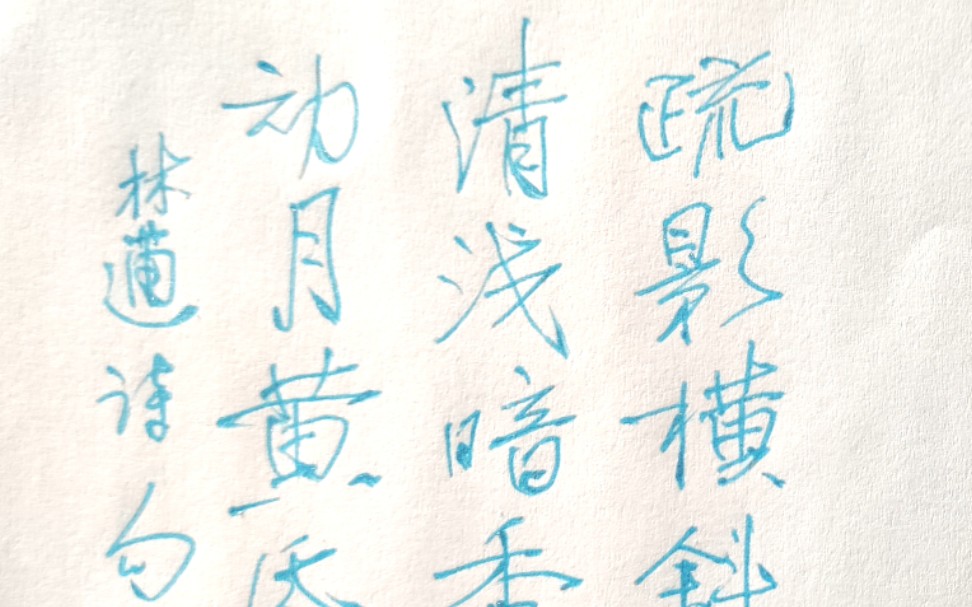 疏影横斜
清浅暗香
动月黄昏
林逋诗句